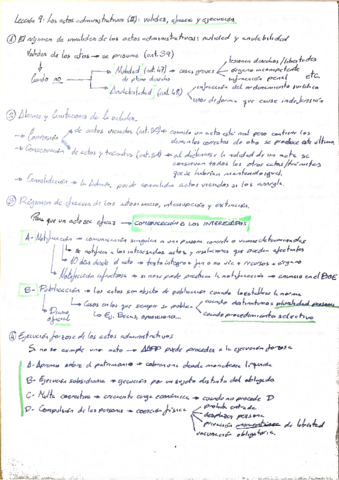 Lección 9: Los actos administrativos (II): validez, eficacia y ejecución
① El régimen de invalidez de los actos administrativos: nulidad y anulabilidad
Validez de los actos → se presume (art. 39)
Cuando no
Nulidad (art. 47) → casos graves
de pleno derecho
lesionan derechos/libertades
órgano incompetente
infracción penal etc
Anulabilidad (art. 48)
infracción del ordenamiento jurídico
vicio de forma que cause indefensión
② Alcance y limitaciones de la
Conversión de actos viciados → cuando un acto esté mal pero contiene los
elementos correctos de otro se produce este último
Conservación de actos y trámites → al declararse la nulidad de un acto se
conservan todos los otros actos/trámites
que se hubieran mantenido igual
Convalidación → la Admin. puede convalidar actos viciados si los arregla
③ Régimen de eficacia de los actos: inicio, interrupción y extinción
Para que un acto sea eficaz → COMUNICACIÓN A LOS INTERESADOS
A- Notificación → comunicación singular a una persona concreta o varias determinadas
se notifica a los interesados actos y resoluciones que puedan afectar
10 días desde el acto → texto íntegro + fin o no vía + recursos + órgano
Notificación infructuosa → si no se puede practicar la notificación → anuncio en el BOE
B- Publicación → los actos son objeto de publicación cuando lo establece la norma
Diario oficial
Casos en los que siempre se publica
cuando destinatarios pluralidad personas
cuando procedimiento selectivo
Ej: Becas, oposiciones...
④ Ejecución forzosa de los actos administrativos
Si no se cumple un acto → AAPP puede proceder a la ejecución forzosa
A- Apremio sobre el patrimonio → cobran una deuda monetaria líquida
B- Ejecución subsidiaria → ejecución por un sujeto distinto del obligado
C- Multa coercitiva → creciente carga económica → cuando no procede D
D- Compulsión de las personas → coacción física
prohibir entrada
desplazar persona
privación momentánea de libertad
vacunación obligatoria